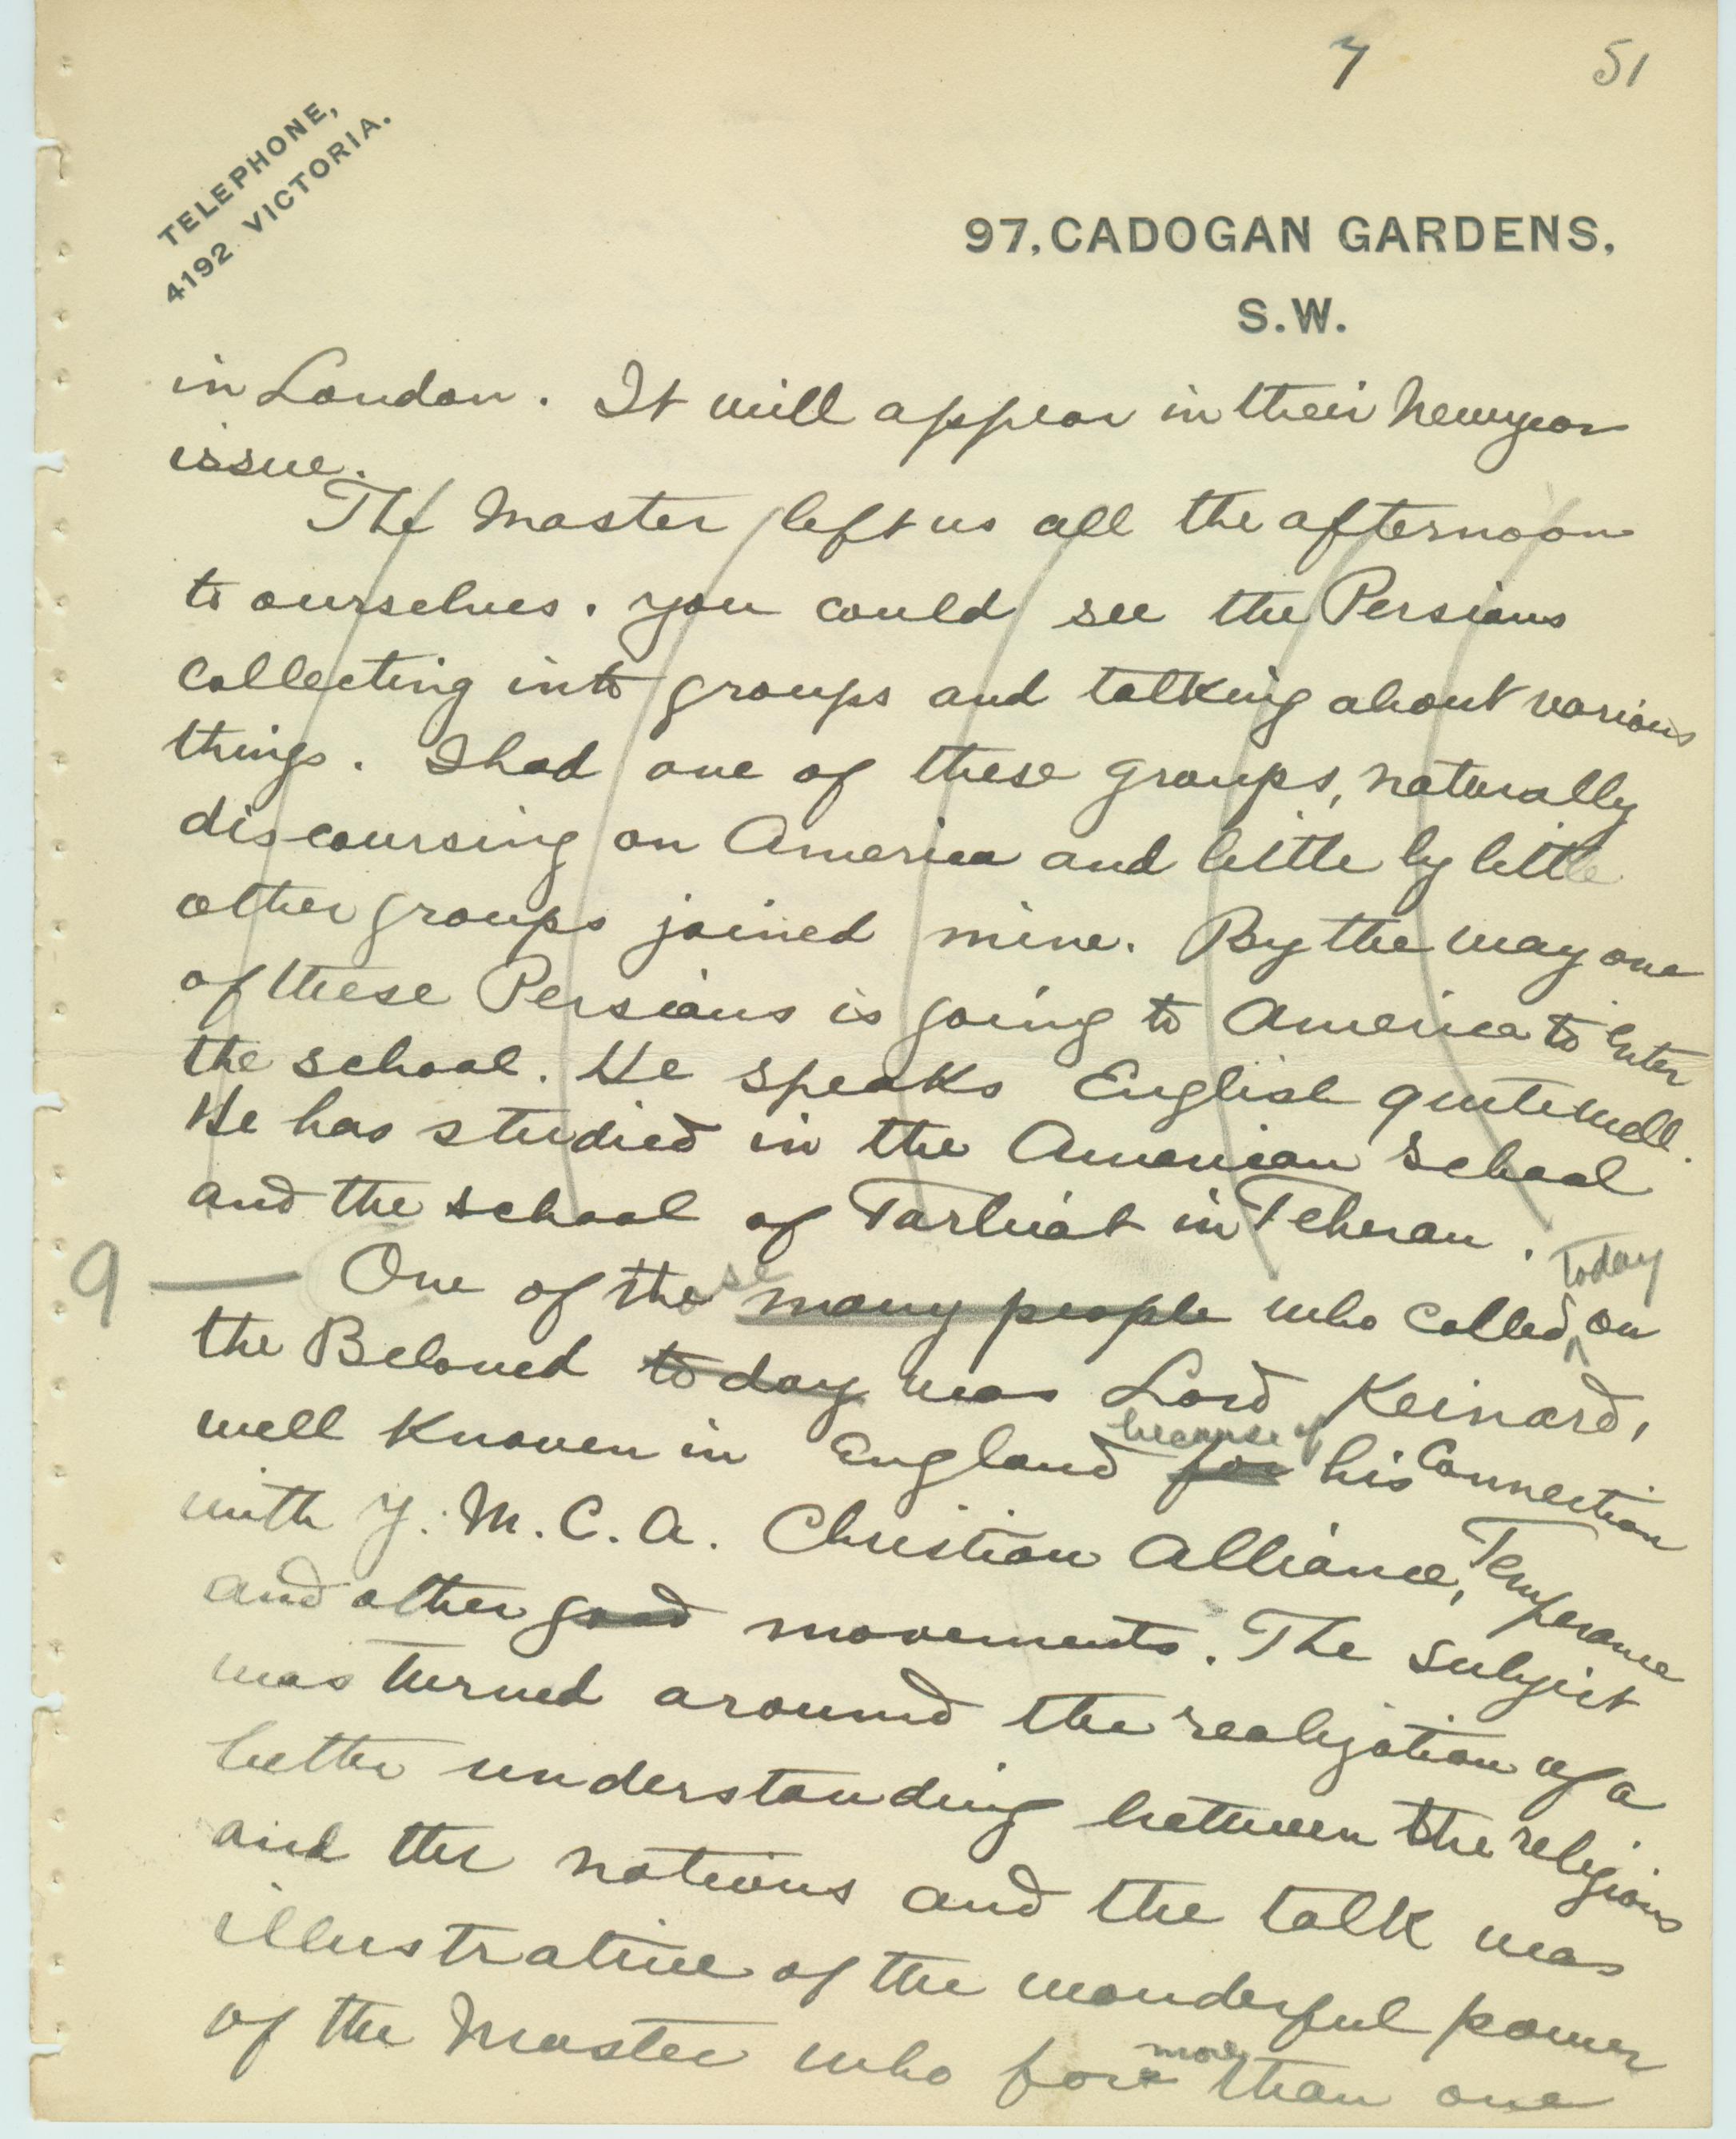 7 51
TELEPHONE,
4192 VICTORIA.
97, CADOGAN GARDENS,
S.W.
in London. It will appear in their Newyear
issue.
The Master left us all the afternoon
to ourselves. You could see the Persians
collecting into groups and talking about various
things. I had one of these groups, naturally
discoursing on America and little by little
other groups joined mine. By the way one
of these Persians is going to America to enter
the school. He speaks English quite well.
He has studied in the American School
and the school of Tarbiat in Teheran.
today
9 — One of these many people who called on
the Beloved today was Lord Keinard,
because of
well known in England for his connection
with Y. M. C. A. Christian Alliance, Temperance
and other good movements. The subject
was turned around the realization of a
better understanding between the religions
and the nations and the talk was
illustrative of the wonderful power
more
of the Master who for than one